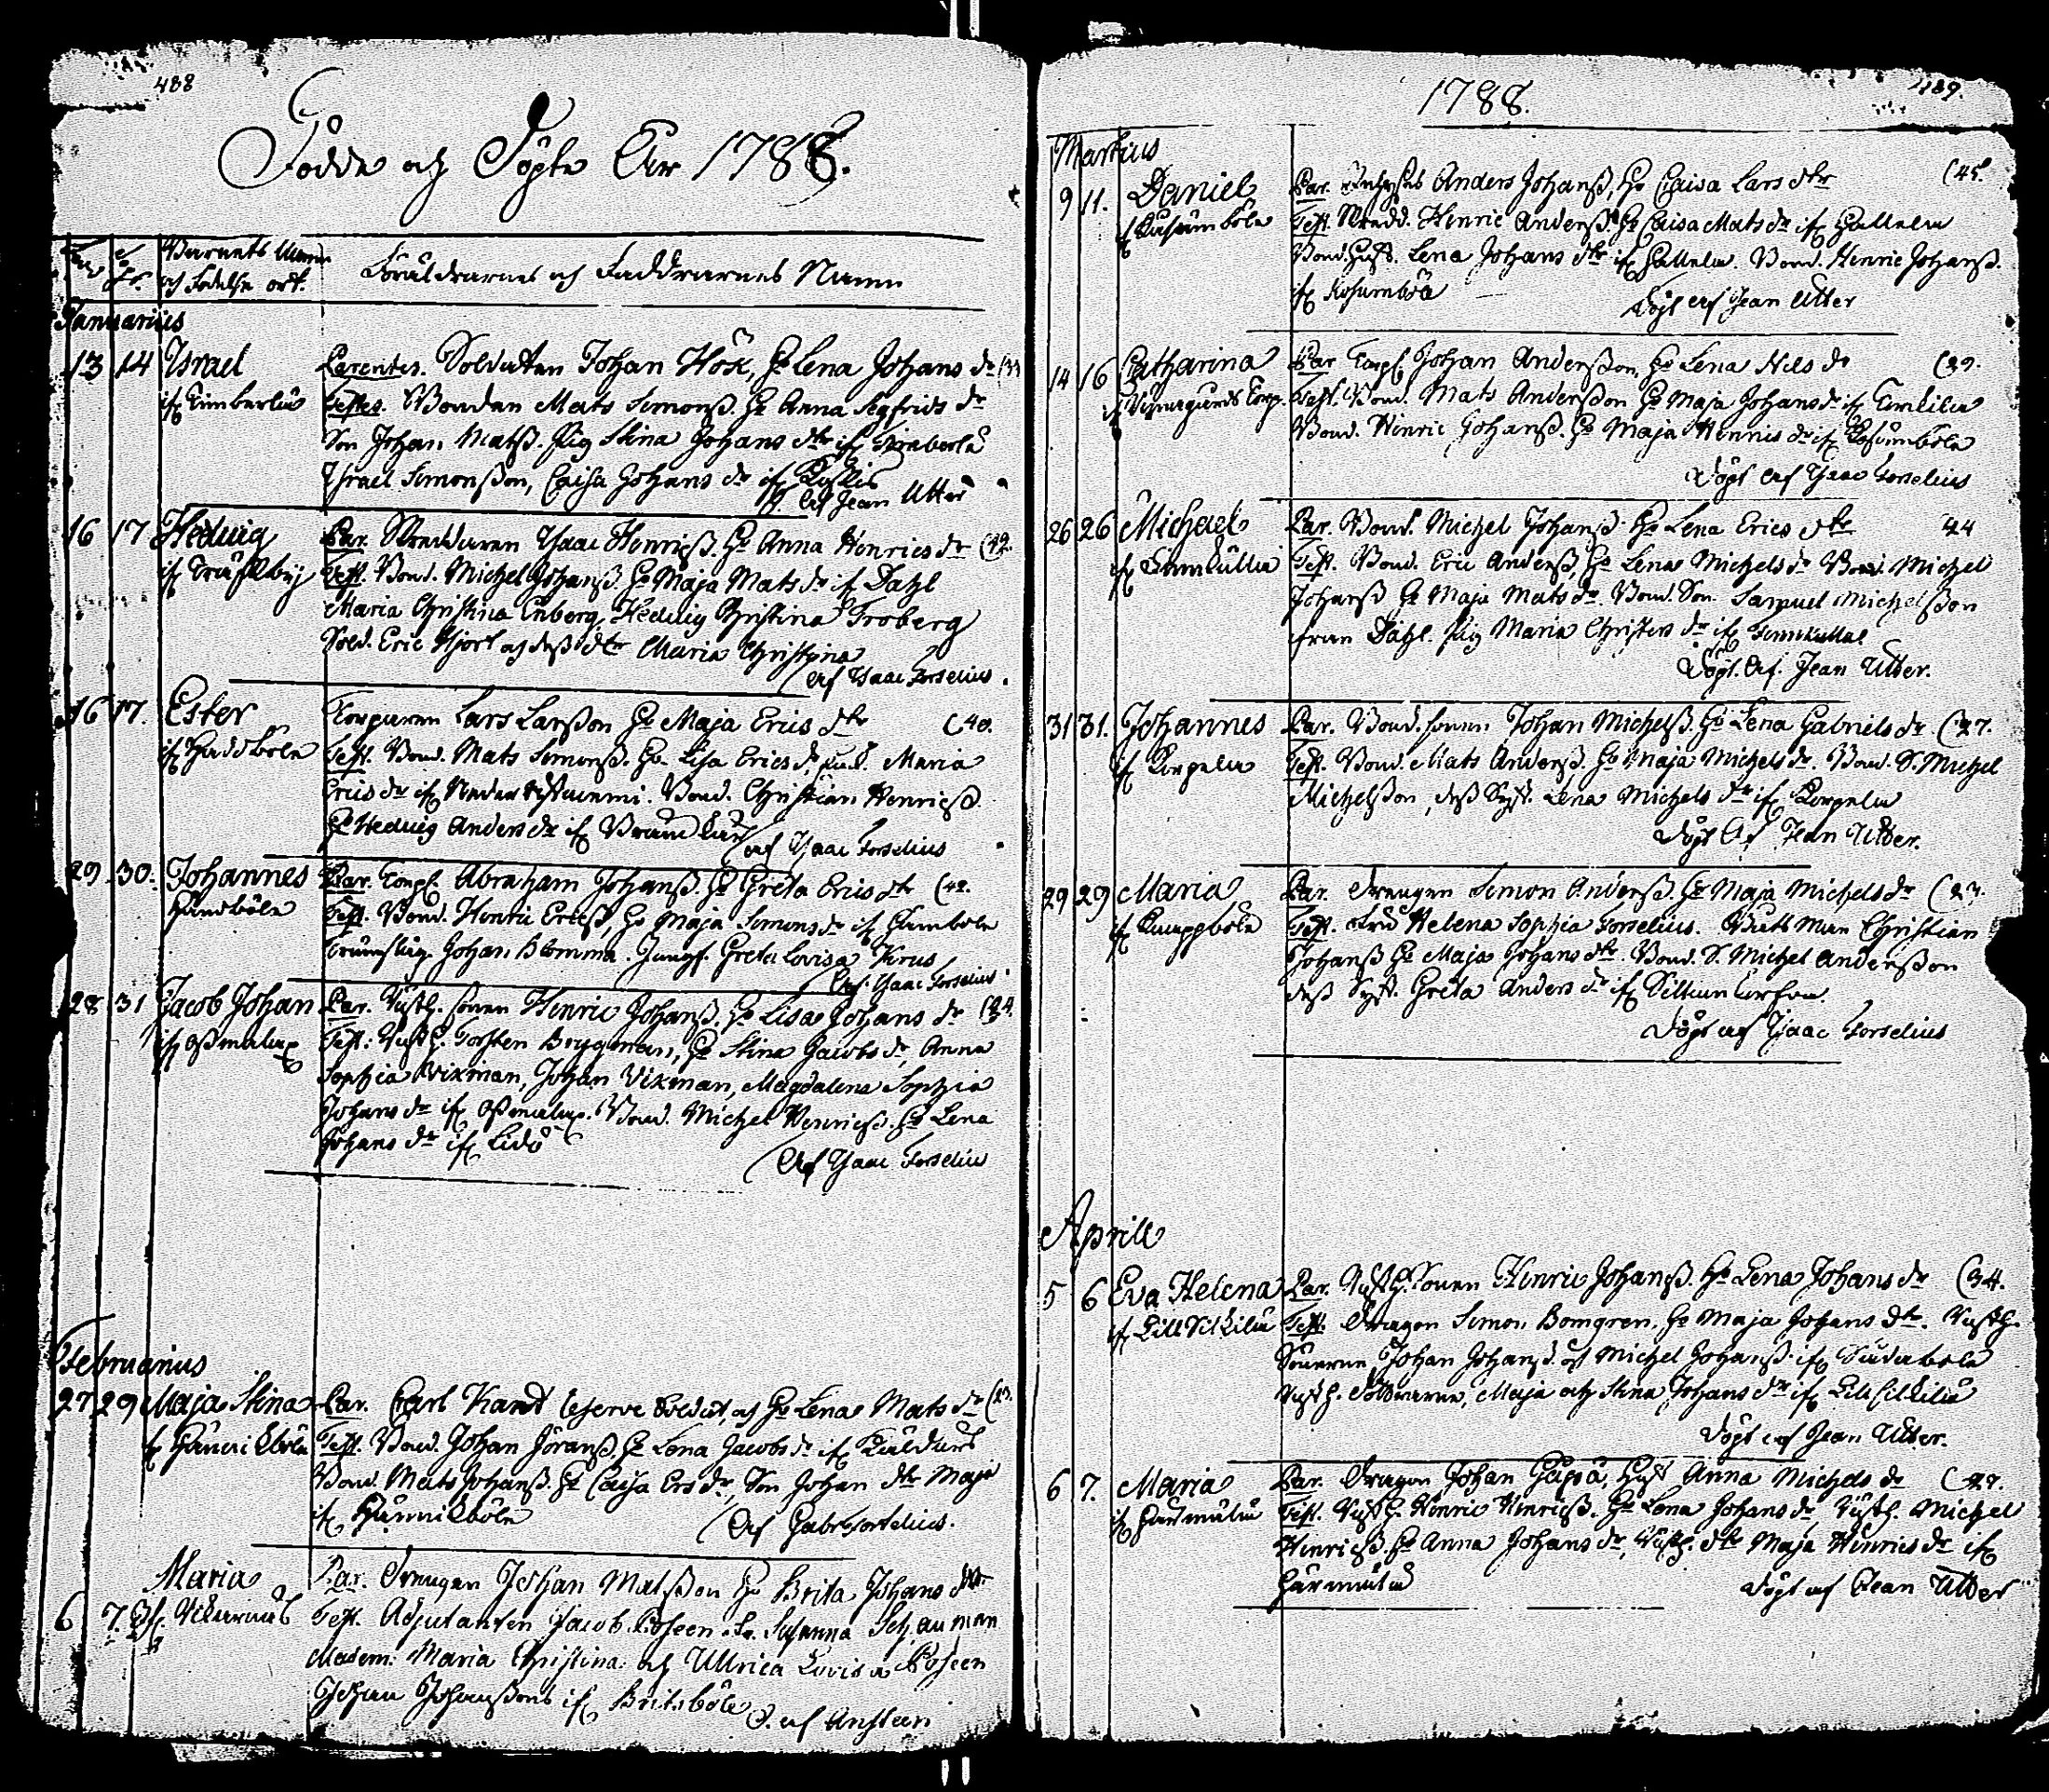 488
Födde och Döpte År 1788.
Barnets Namn
och Födelse ort.
Föräldrarnes och Faddrarnes Namn
Januarius
13 14 Israel
Parentes. Soldaten Johan Höök, H. Lena Johans dr
Testes. Bonden Mats Simonss. H. Anna Segfrids dr
Son Johan Matss. Pig Stina Johans dtr if
Israel Simonsson, Caisa Johans dr if
D. af Jean Utter
16 17 Hedwig
if Träskby
Par. Skreddaren Isaac Henricss. H. Anna Henrics dr (42.
Test. Bond. Michel Johanss H. Maja Mats dr if Dahl
Maria Christina Enberg, Hedwig Christina Froberg
Sold. Eric Hjort och dess dtr Maria Christina
af Isaac Forselius.
16 17. Ester
Torparen Lars Larsson H. Maja Erics dtr (40.
Test. Bond. Mats Simonss. H. Lisa Erics dr Maria
Erics dr if Bond. Christian Henricss.
H. Hedwig Anders dr if
af Isaac Forselius
29. 30. Johannes
Par. Torp. Abraham Johanss. H. Greta Erics dtr (42.
Test. Bond. Henric Ericss, H. Maja Simons dr if
Johan Blomma. Jungf. Greta Lovisa Krus
af. Isaac Forselius
28 31 Jacob Johan
Par. Rusth. sonen Henric Johanss. H. Lisa Johans dr (24.
Test: Rusth. Torsten Brygman, H. Stina Jacobs dr, Anna
Sophia Wikman, Johan Wikman, Magdalena Sophia
Johans dr if Bond. Michel Henricss. H. Lena
Johans dr if Lidö
Af Isaac Forselius
Februarius
27 29 Maja Stina
Par. Carl Kant Reserve Soldat, och H. Lena Mats dr (23.
Test. Bond. Johan Jöranss. H. Lena Jacobs dr if
Bond. Mats Johanss. H. Caisa Ers dr, Son Johan dtr Maja
if
Af Gabr Forselius.
Maria
6 7.
Par. Drengen Johan Matsson H. Brita Johans dtr.
Test. Adjutanten Jacob Poseen. Fr. Susanna Schauman
Madem: Maria Christina. och Ullrica Lovisa Poseen
Johan Johanssons if Britsböle
D. af Ansteen
1788.
489.
Martius
9 11. Daniel
Par. Anders Johanss, H. Caisa Lars dtr (45.
Test. Skredd. Henric Anderss. H. Caisa Mats dr if
Bond. Hust. Lena Johans dtr if Bond. Henric Johanss.
if
Döpt af Jean Utter
14 16 Catharina
Par Torp. Johan Andersson, H. Lena Nils dr (29.
Test. Bond. Mats Andersson H. Maja Johans dr if
Bond. Henric Johanss. H. Maja Hennis dr if
Döpt af Isaac Forselius
26 26 Michael
Par. Bond. Michel Johanss H. Lena Erics dtr 44
Test. Bond. Eric Anderss, H. Lena Michels dr Bond. Michel
Johanss H. Maja Mats dr. Bond. Son. Samuel Michelsson
från Dahl. Pig Maria Christers dr if Finnkulla
Döpt. Af. Jean Utter.
31 31. Johannes
if Korpela
Par. Bond. sonen Johan Michelss. H. Lena Gabriels dr (27.
Test. Bond. Mats Anderss. H. Maja Michels dr. Bond. S. Michel
Michelsson, dess Syst. Lena Michels dr if Korpela
Döpt Af Jean Utter.
29 29 Maria
Par. Drengen Simon Anderss. H. Maja Michels dr (23.
Test. Fru Helena Sophia Forselius. Båts man Christian
Johanss H. Maja Johans dtr Bond. S. Michel Andersson
dess Syst. Greta Anders dr if
Döpt af Isaac Forselius
Aprill
5 6 Eva Helena
Par. Rusth. Sonen Henric Johanss. H. Lena Johans dr (34.
Test. Dragon Simon Bomgren, H. Maja Johans dtr. Rusth.
Sönerne Johan Johanss. och Michel Johanss. if
Rusth. Döttrarne, Maja och Stina Johans dr if
Döpt af Jean Utter.
6 7. Maria
Par. Dragon Johan Hust Anna Michels dr (27.
Test. Rusth. Henric Henricss. H. Lena Johans dr, Rusth. Michel
Henricss. H. Anna Johans dr, Rusth. dtr Maja Henrics dr if
Döpt af Jean Utter